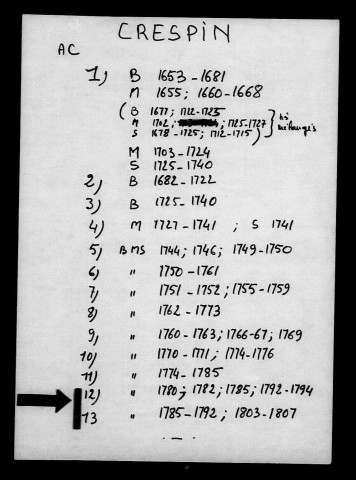 CRESPIN
AC
1) B 1653-1681
M 1655; 1660-1668
( B 1677; 1722-1723
M 1702; ; 1725-1727
S 1678-1725; 1712-1715 ) mélangés
M 1703-1724
S 1725-1740
2) B 1682-1722
3) B 1725-1740
4) M 1727-1741 ; S 1741
5) BMS 1744; 1746; 1749-1750
6) " 1750-1761
7) " 1751-1752; 1755-1759
8) " 1762-1773
9) " 1760-1763; 1766-67; 1769
10) " 1770-1771; 1774-1776
11) " 1774-1785
12) " 1780; 1782; 1785; 1792-1794
13 " 1785-1792; 1803-1807